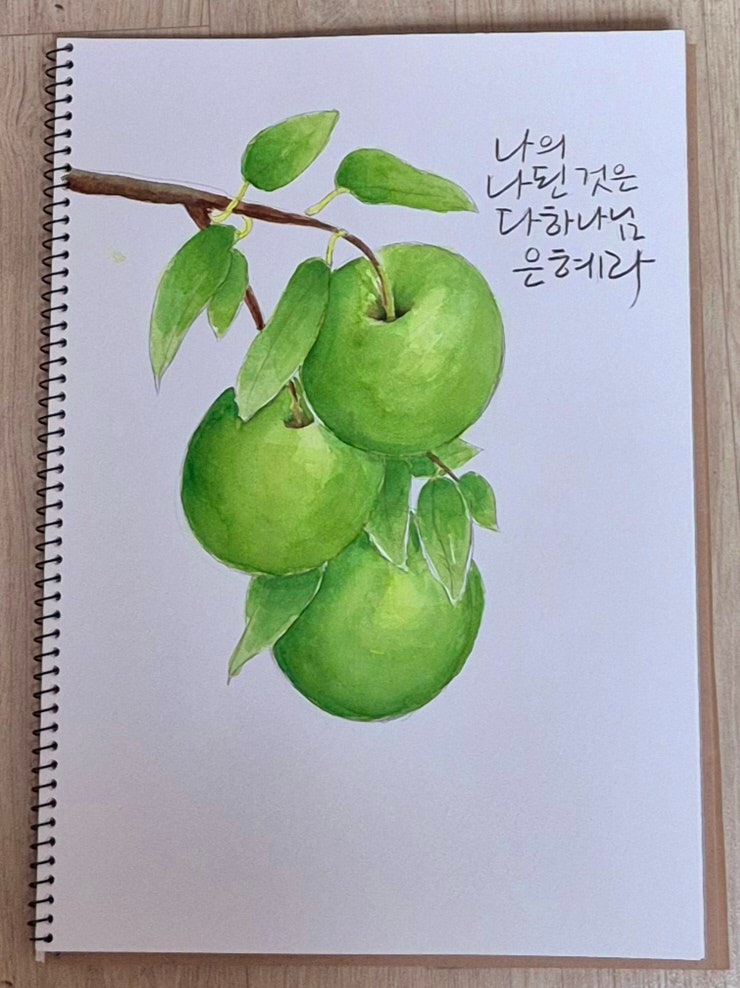 나의
나된 것은
다하나님
은혜라